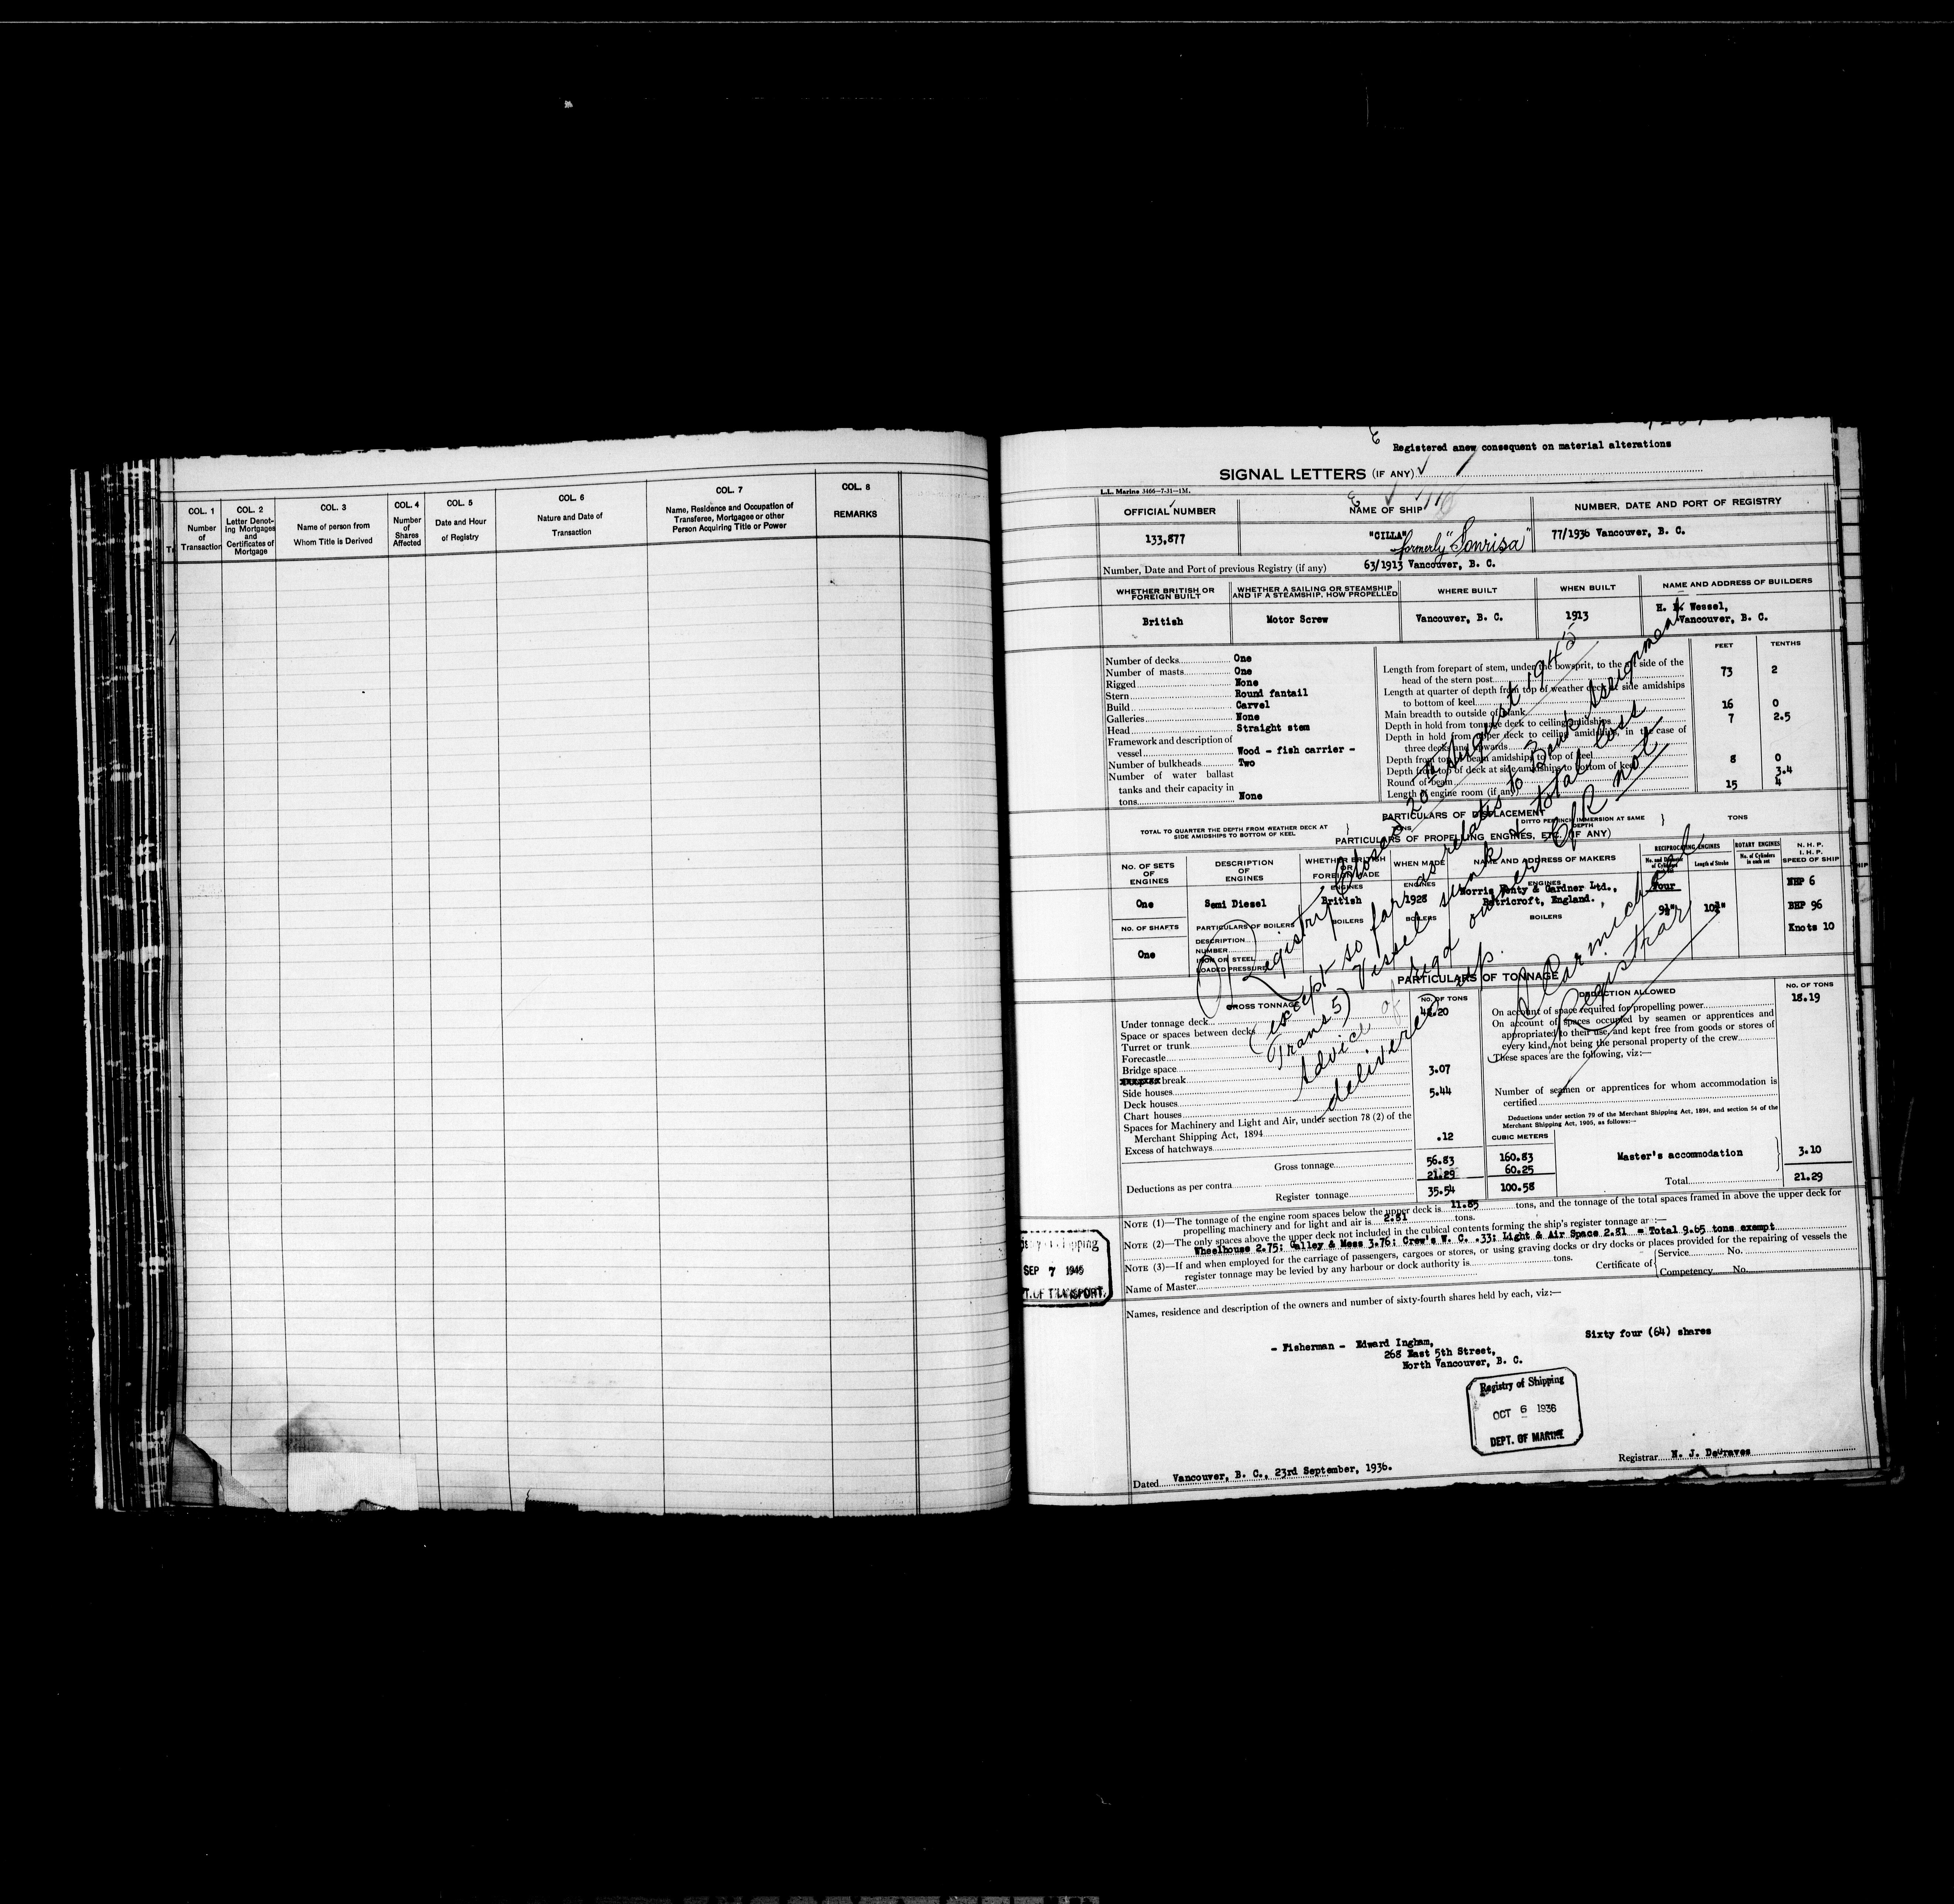 COL. 1
Number
of
Transaction
COL. 2
Letter Denot-
ing Mortgages
and
Certificates of
Mortgage
COL. 3
Name of person from
Whom Title is Derived
COL. 4
Number
of
Shares
Affected
COL. 5
Date and Hour
of Registry
COL. 6
Nature and Date of
Transaction
COL. 7
Name, Residence and Occupation of
Transferee, Mortgagee or other
Person Acquiring Title or Power
COL. 8
REMARKS
Registered anew consequent on material alterations
SIGNAL LETTERS (IF ANY)
L.L. Marine 3466—7-31—1M.
OFFICIAL NUMBER
NAME OF SHIP
NUMBER, DATE AND PORT OF REGISTRY
133,877
"CILLA"
formerly "Sonrisa"
77/1936 Vancouver, B. C.
Number, Date and Port of previous Registry (if any) 63/1913 Vancouver, B. C.
WHETHER BRITISH OR
FOREIGN BUILT
WHETHER A SAILING OR STEAMSHIP
AND IF A STEAMSHIP, HOW PROPELLED
WHERE BUILT
WHEN BUILT
NAME AND ADDRESS OF BUILDERS
British
Motor Screw
Vancouver, B. C.
1913
Wessel,
Vancouver, B. C.
FEET TENTHS
Number of decks One
Number of masts One
Rigged None
Stern Round fantail
Build Carvel
Galleries None
Head Straight stem
Framework and description of
vessel Wood - fish carrier -
Number of bulkheads Two
Number of water ballast
tanks and their capacity in
tons None
Length from forepart of stem, under the bowsprit, to the aft side of the
head of the stern post 73 2
Length at quarter of depth from top of weather deck at side amidships
to bottom of keel
Main breadth to outside of plank 16 0
Depth in hold from tonnage deck to ceiling amidships 7 2.5
Depth in hold from upper deck to ceiling amidships, in the case of
three decks and upwards
Depth from top of beam amidships to top of keel 8 0
Depth from top of deck at side amidships to bottom of keel
Round of beam 3.4
Length of engine room (if any) 15 4
PARTICULARS OF DISPLACEMENT
TOTAL TO QUARTER THE DEPTH FROM WEATHER DECK AT
SIDE AMIDSHIPS TO BOTTOM OF KEEL
TONS
DITTO PER INCH IMMERSION AT SAME
DEPTH
TONS
PARTICULARS OF PROPELLING ENGINES, ETC. (IF ANY)
NO. OF SETS
OF
ENGINES
DESCRIPTION
OF
ENGINES
WHETHER BRITISH
OR
FOREIGN MADE
WHEN MADE
NAME AND ADDRESS OF MAKERS
RECIPROCATING ENGINES
No. and Diameter
of Cylinders
Length of Stroke
ROTARY ENGINES
No. of Cylinders
in each set
N. H. P.
I. H. P.
SPEED OF SHIP
ENGINES
ENGINES
ENGINES
One
Semi Diesel
British
1928
Norris Henty & Gardner Ltd.,
Patricroft, England.
Four
9½"
NHP 6
BHP 96
Knots 10
NO. OF SHAFTS
One
PARTICULARS OF BOILERS
BOILERS
BOILERS
BOILERS
DESCRIPTION
NUMBER
IRON OR STEEL
LOADED PRESSURE
PARTICULARS OF TONNAGE
GROSS TONNAGE
NO. OF TONS
DEDUCTION ALLOWED
NO. OF TONS
Under tonnage deck
Space or spaces between decks
Turret or trunk
Forecastle
Bridge space
break 3.07
Side houses
Deck houses 5.44
Chart houses
Spaces for Machinery and Light and Air, under section 78 (2) of the
Merchant Shipping Act, 1894
Excess of hatchways .12
CUBIC METERS
Gross tonnage 56.83 160.83
Deductions as per contra 21.29 60.25
Register tonnage 35.54 100.58
On account of space required for propelling power 18.19
On account of spaces occupied by seamen or apprentices and
appropriated to their use, and kept free from goods or stores of
every kind, not being the personal property of the crew
These spaces are the following, viz:—
Number of seamen or apprentices for whom accommodation is
certified
Deductions under section 79 of the Merchant Shipping Act, 1894, and section 54 of the
Merchant Shipping Act, 1906, as follows:—
Master's accommodation 3.10
Total 21.29
NOTE (1)—The tonnage of the engine room spaces below the upper deck is 11.85 tons, and the tonnage of the total spaces framed in above the upper deck for
propelling machinery and for light and air is 2.81 tons.
NOTE (2)—The only spaces above the upper deck not included in the cubical contents forming the ship's register tonnage are:—
Wheelhouse 2.75; Galley & Mess 3.76; Crew's W. C. .33; Light & Air Space 2.81 = Total 9.65 tons exempt
NOTE (3)—If and when employed for the carriage of passengers, cargoes or stores, or using graving docks or dry docks or places provided for the repairing of vessels the
register tonnage may be levied by any harbour or dock authority is tons.
Name of Master
Certificate of
Service No.
Competency No.
Names, residence and description of the owners and number of sixty-fourth shares held by each, viz:—
- Fisherman - Edward Ingham,
268 East 5th Street,
North Vancouver, B. C.
Sixty four (64) shares
Registry of Shipping
OCT 6 1936
DEPT. OF MARINE
SEP 7 1945
PT. OF TRANSPORT.
Dated Vancouver, B. C., 23rd September, 1936.
Registrar N. J. DeGraves
Registry Closed 20th August 1945
(except so far as relates to Bank Assignment
Trans 5) Vessel sunk & total loss
Advice of read owner CfR not
delivered up.
Carmichael
Registrar